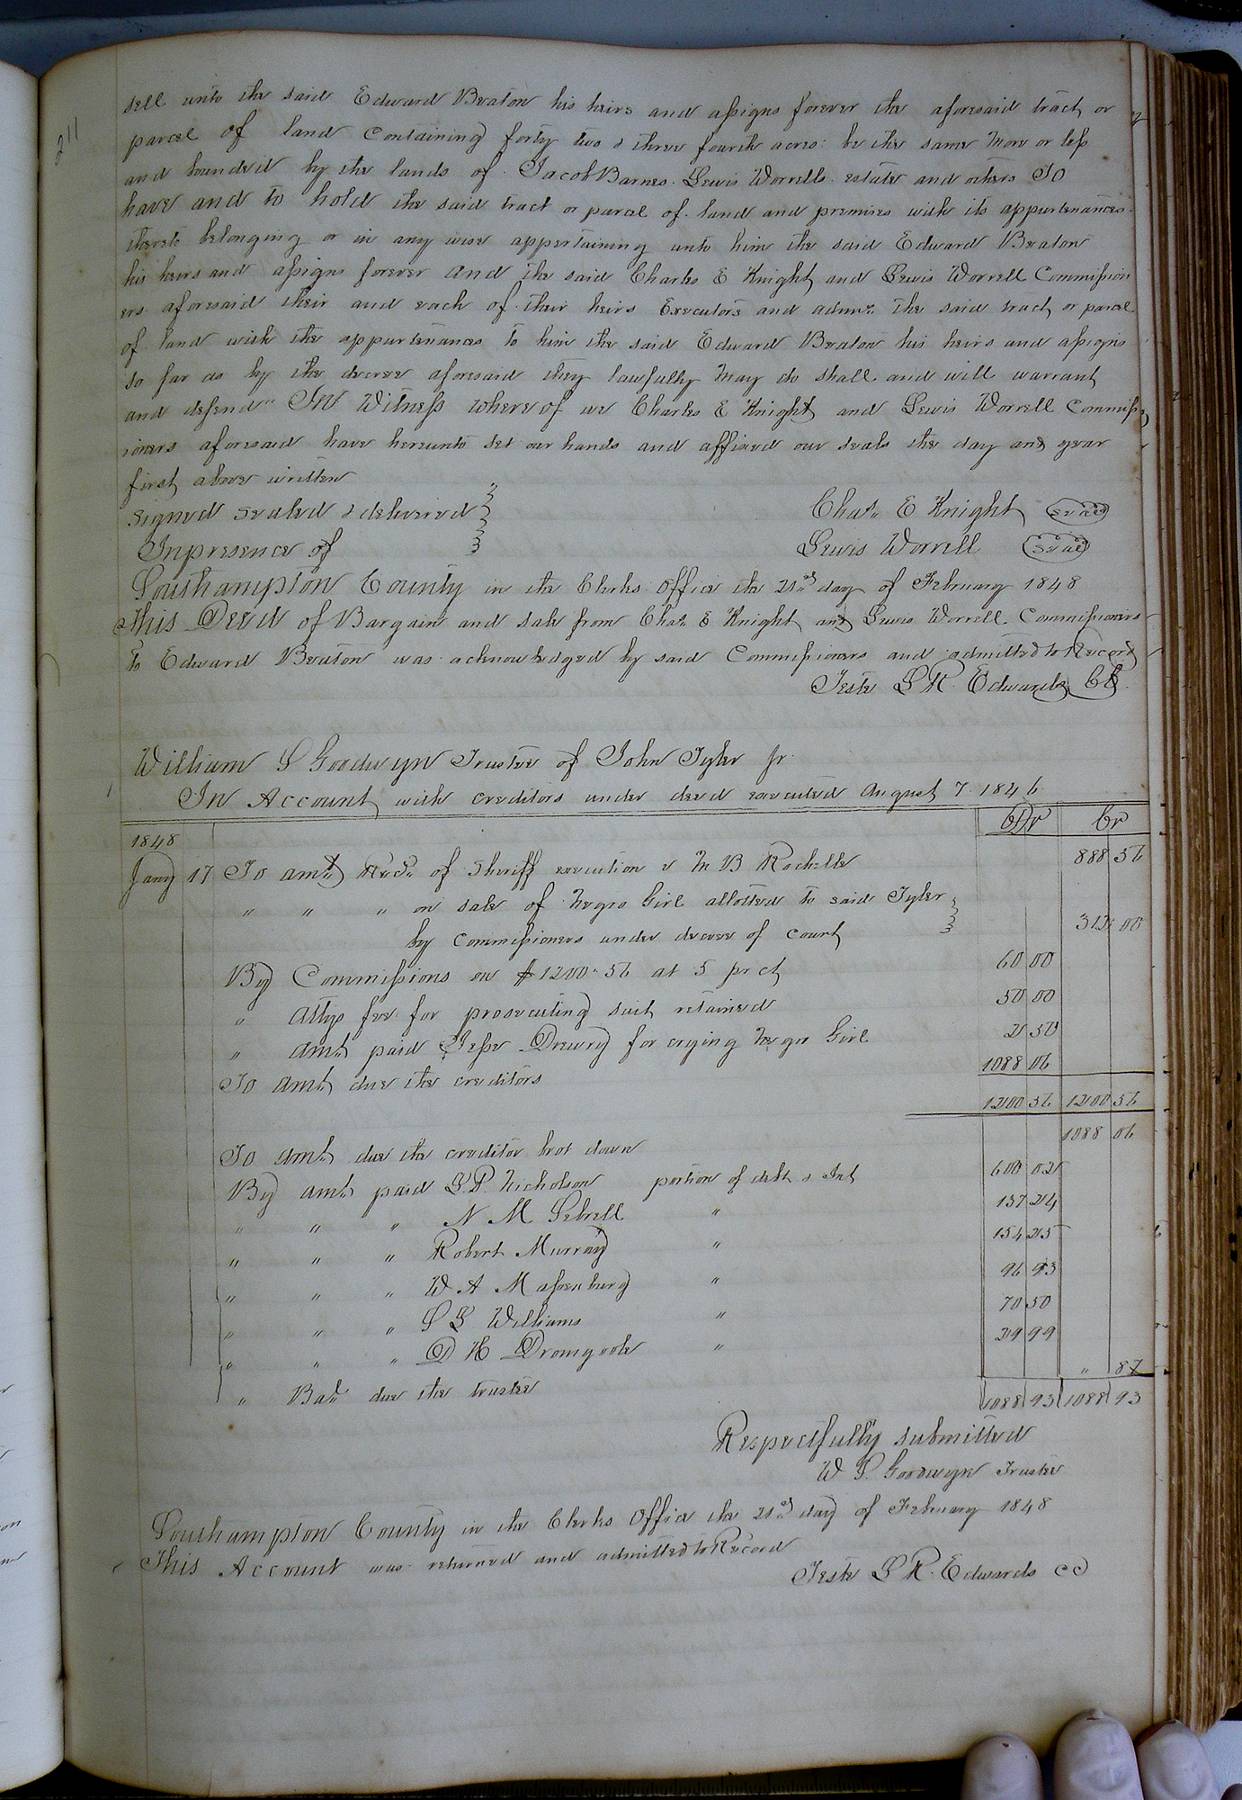 211
sell unto the said Edward Beaton his heirs and assigns forever the aforesaid tract or
parcel of land Containing forty two & three fourth acres be the same more or less
and bounded by the lands of Jacob Barnes Lewis Worrells estate and others To
have and to hold the said tract or parcel of land and premises with its appurtenances
thereto belonging or in any wise appertaining unto him the said Edward Beaton
his heirs and assigns forever and the said Charles E Knight and Lewis Worrell Commission
ers aforesaid their and each of their heirs Executors and admrs The said tract or parcel
of land with the appurtenances to him the said Edward Beaton his heirs and assigns
so far as by the decree aforesaid they lawfully may do shall and will warrant
and defend In Witness whereof we Charles E Knight and Lewis Worrell Commiss
ioners aforesaid have hereunto set our hands and affixed our seals the day and year
first above written
Signed sealed & delivered Chas. E Knight (seal)
In presence of Lewis Worrell (seal)
Southampton County in the Clerks Office the 21st day of February 1848
This Deed of Bargain and sale from Chas E Knight and Lewis Worrell Commissioners
to Edward Beaton was acknowledged by said Commissioners and admitted to Record
Teste L R Edwards CC
William S Goodwyn Trustee of John Tyler Jr
In Account with creditors under deed executed August 7 1846
1848 Dr Cr
Jany 17 To amt. Recd. of Sheriff execution v M B Rochelle 888 56
" " " on sale of Negro Girl allotted to said Tyler
by commissioners under decree of court 312 00
By Commissions on $1200.56 at 5 pr ct 60 00
" Attys fee for prosecuting suit retained 50 00
" Amt. paid Jesse Drewry for crying Negro Girl 2 50
To Amt. due the creditors 1088 06
1200 56 1200 56
To Amt. due the creditor brot down 1088 06
By Amt. paid S P Nicholson portion of debt & Int 600 02
" " " N M Sebrell " 137 24
" " " Robert Murray " 154 25
" " " W A Massenburg " 96 93
" " " S G Williams " 70 50
" " " D H Dromgoole " 29 99
" Bal. due the trustee " 87
1088 93 1088 93
Respectfully submitted
W S. Goodwyn Trustee
Southampton County in the Clerks Office the 21st day of February 1848
This Account was returned and admitted to Record
Teste L R. Edwards CC